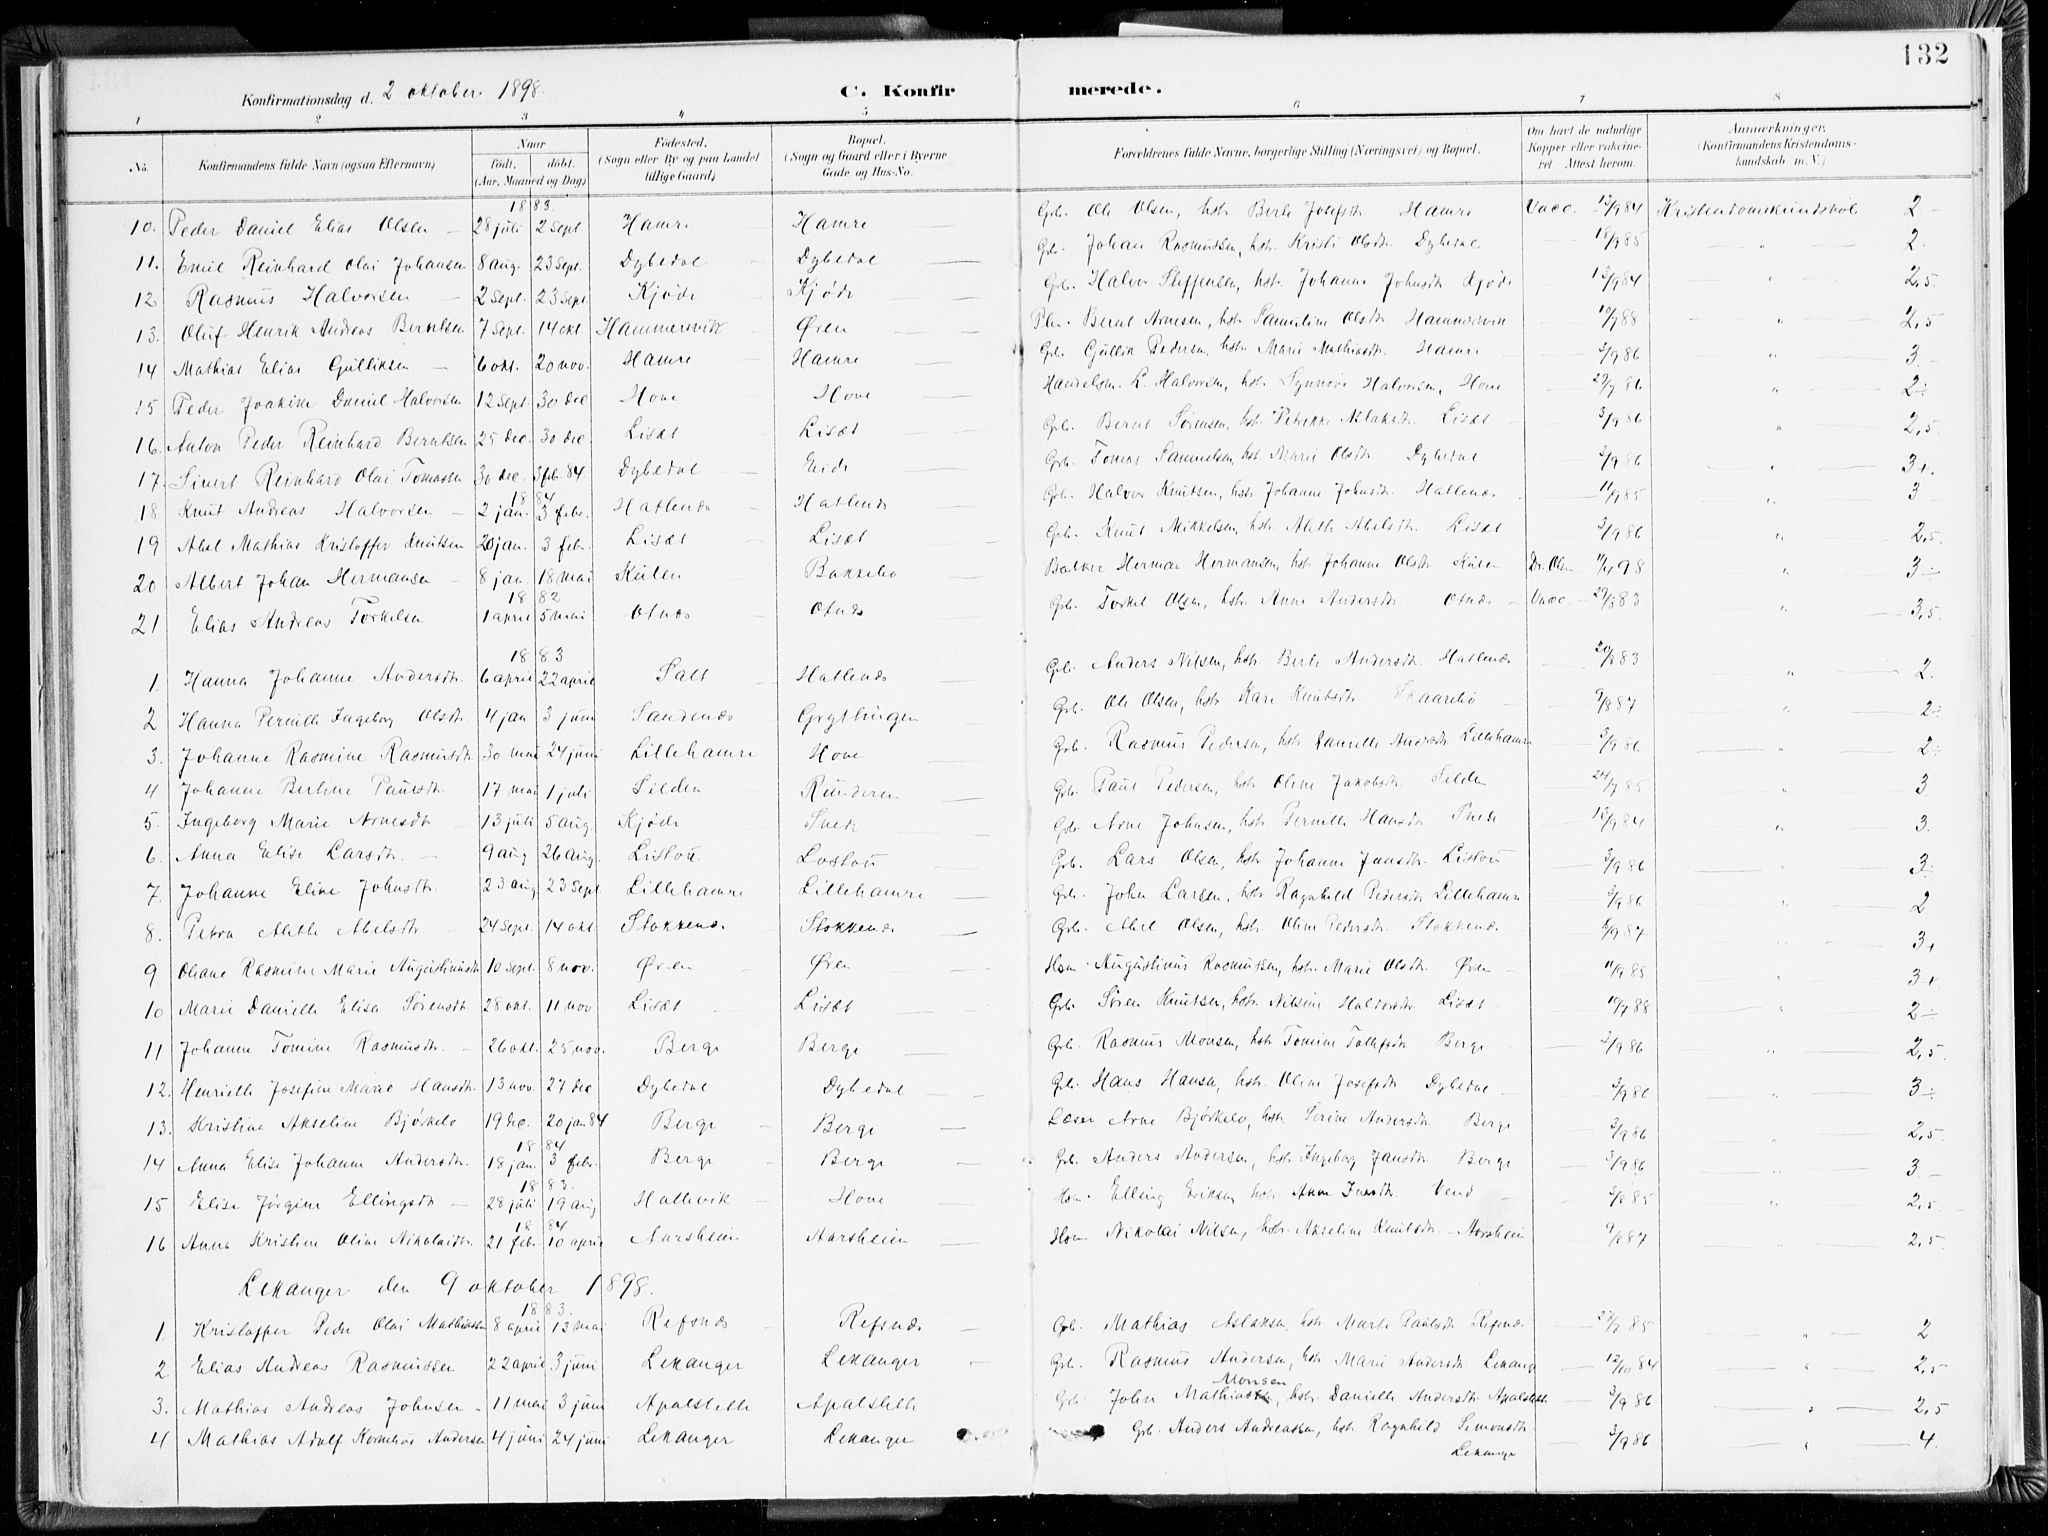 132
Konfirmationsdag d. 2 oktober 1898. C. Konfirmerede.
1 2 3 4 5 6 7 8
No. Konfirmandens fulde Navn (ogsaa Efternavn) Naar født, døbt. (Aar, Maaned og Dag) Fødested. (Sogn eller By og paa Landet tillige Gaard) Bopæl. (Sogn og Gaard eller i Byerne Gade og Hus-No. Forældrenes fulde Navne, borgerlige Stilling (Næringsvei) og Bopæl. Om havt de naturlige Kopper eller vakcineret Attest herom. Anmærkninger. (Konfirmandens Kristendomskundskab m. V.)
1883
10. Peder Daniel Elias Olsen — 28 juli 2 sept Hamre Hamre — Grb. Ole Olsen, hstr. Berte Josefsdtr Hamre Vacc. 13/9 84 Kristendomskundskab 2 —
11. Emil Reinhard Olai Johansen 8 aug. 23 sept. Dybedal Dybedal — Grb. Johan Rasmussen, hstr. Kristi Olsdtr. Dybedal — 18/9 85 — " — 2.
12 Rasmus Halvorsen — 2 sept. 23 sept. Kjøde Kjøde — Grb. Halvor Steffensen, hstr. Johanne Johnsdtr Kjøde — 13/9 84 — " — 2,5.
13. Oluf Henrik Andreas Berntsen 7 sept. 14 okt Hammersvik Øren — Bernt Arnesen, hstr. Samuline Olsdtr. Hammersvik — 19/7 88 — " — 2,5
14 Mathias Elias Gulliksen — 6 okt. 20 nov. Hamre Hamre — Grb. Gullik Pedersen, hstr. Marie Mathiasdtr. Hamre — 3/9 86 — " — 3. —
15 Peder Joakim Daniel Halvorsen 12 sept. 30 dec Hove Hove — Handelsm. L. Halvorsen, hstr. Synnøve Halvorsen, Hove — 29/7 86 — " — 2÷
16. Anton Peder Reinhard Berntsen 25 dec. 30 dec. Lisæt Lisæt — Grb. Bernt Sørensen, hstr. Petrikke Aslaksdtr. Lisæt — 3/9 86 — " — 2,5.
17. Sivert Reinhard Olai Tomassen 30 dec. 3 feb. 84 Dybedal Eide — Grb. Tomas Samuelsen, hstr. Marie Olsdtr. Dybedal — 3/9 86 — " — 3+.
1884
18 Knut Andreas Halvorsen — 2 jan. 3 febr. Hatlenæs Hatlenæs Grb. Halvor Knutsen, hstr. Johanne Johnsdtr. Hatlenæs — 11/9 85 — " — 3
19 Abel Mathias Kristoffer Knutsen 20 jan. 3 febr. Lisæt Lisæt — Grb. Knut Mikkelsen, hstr. Alethe Abelsdtr. Lisæt — 3/9 86 — " — 2,5.
20 Albert Johan Hermansen — 8 jan. 18 mai Kulen Bakkebø — Herman Hermansen, hstr. Johanne Olsdtr Kulen Dr. Olsen 11/4 98 — " — 3÷
1882
21 Elias Andreas Torkelsen 1 april 5 mai Otnæs Otnæs Grb. Torkel Olsen, hstr. Anne Andersdtr. Otnæs — Vacc. — 29/8 83 " — 3,5.
1883
1. Hanna Johanne Andersdtr. 6 april 22 april Salt Hatlenæs Grb. Anders Nilsen, hstr. Berte Andersdtr. Hatlenæs — 20/8 83 — " — 2.
2 Hanna Pernille Ingeborg Olsdtr. 4 jan 3 juni Sandenæs Grytlingen Grb. Ole Olsen, hstr. Kari Knutsdtr Skaarebø — 9/8 87 — " — 2÷
3. Johanne Rasmine Rasmusdtr. 30 mai 24 juni Lillehamre Hove — Grb. Rasmus Pedersen, hstr. Danielle Andersdtr Lillehamre 3/9 86 — " — 2÷
4 Johanne Berline Paulsdtr. 17 mai 1 juli Silden Runderen — Grb. Paul Pedersen, hstr Oline Jakobsdtr Silden — 24/7 85 — " — 3
5. Ingeborg Marie Arnesdtr — 13 juli 5 aug. Kjøde — Grb. Arne Johnsen, hstr. Pernille Hansdtr — 13/9 84 — " — 3.
6. Anna Elise Larsdtr. — 9 aug 26 aug. Listou Lostou — Grb. Lars Olsen, hstr Johanne Jansdtr. Listou — 3/9 86 — " — 3÷
7. Johanne Eline Johnsdtr. 23 aug. 23 sept. Lillehamre Lillehamre — Grb. John Larsen, hstr Ragnhild Pedersdtr Lillehamre 3/9 86 — " — 2
8. Petra Alethe Abelsdtr — 24 sept. 14 okt. Stokkenæs Stokkenæs — Grb. Abel Olsen, hstr. Oline Pedersdtr. Stokkenæs 6/9 87 — " — 3+
9. Oliane Rasmine Marie Augustinusdtr 10 sept. 8 nov. Øren Øren — Hsm. Augustinus Rasmussen, hstr. Marie Olsdtr. Øren — 11/9 85 — " — 3+.
10 Marie Danielle Elisa Sørensdtr 28 okt. 11 nov Lisæt Lisæt — Grb. Søren Knutsen, hstr. Nilsine Halvorsdtr Lisæt — 19/7 88 — " — 2÷
11 Johanne Tomine Rasmusdtr. — 26 okt. 25 nov. Berge Berge — Grb. Rasmus Monsen, hstr Tomine Tollefsdtr Berge — 3/9 86 — " — 2,5.
12. Henriette Josefine Marie Hansdtr. 13 nov. 27 dec Dybedal Dybedal — Grb. Hans Hansen, hstr. Oline Josefsdtr. Dybedal — 3/9 86 — " — 3÷
13. Kristine Akseline Bjørkelo 19 dec. 20 jan. 84 Berge — Berge — Lærer Arne Bjørkelo, hstr. Serine Andersdtr Berge 3/9 86 — " — 2,5.
1884
14 Anna Elise Johanne Andersdtr. 18 jan. 3 febr. Berge — Berge — Grb. Anders Andersen, hstr. Ingeborg Jansdtr. Berge — 3/9 86 — " — 3. —
1883.
15 Elise Jørgine Ellingsdtr — 28 juli 19 aug Hattevik — Hove — Hsm. Elling Eriksen, hstr. Anne Iversdtr. Vend — 3/8 85 — " — 2,5.
1884
16 Anna Kristine Oline Nikolaidtr. 21 feb. 10 april Aarsheim Aarsheim — Hsm Nikolai Nilsen, hstr. Akseline Knutsdtr — Aarsheim 9/8 87 — " — 2,5.
Lekanger den 9 oktober 1898.
1883.
1. Kristoffer Peder Olai Mathiassen 8 april 13 mai Refsnæs — Refsnæs — Grb. Mathias Aslaksen, hstr Marte Paulsdtr Refsnæs — 27/7 85 — " — 2
2. Elias Andreas Rasmussen 22 april 3 juni Lekanger Lekanger — Grb. Rasmus Andersen, hstr Marie Andersdtr. Lekanger — 12/10 84 — " — 2,5
Monsen
3. Mathias Andreas Johnsen — 11 mai 3 juni Apalstelle Apalstelle Grb. John Mathiassen, hstr. Danielle Andersdtr Apalstelle 3/9 86 — " — 2,5
4 Mathias Adolf Kornelius Andersen 4 juni 24 juni Lekanger Lekanger Grb. Anders Andreassen, hstr. Ragnhild Simonsdtr. — 3/9 86 — " — 4.
Lekanger